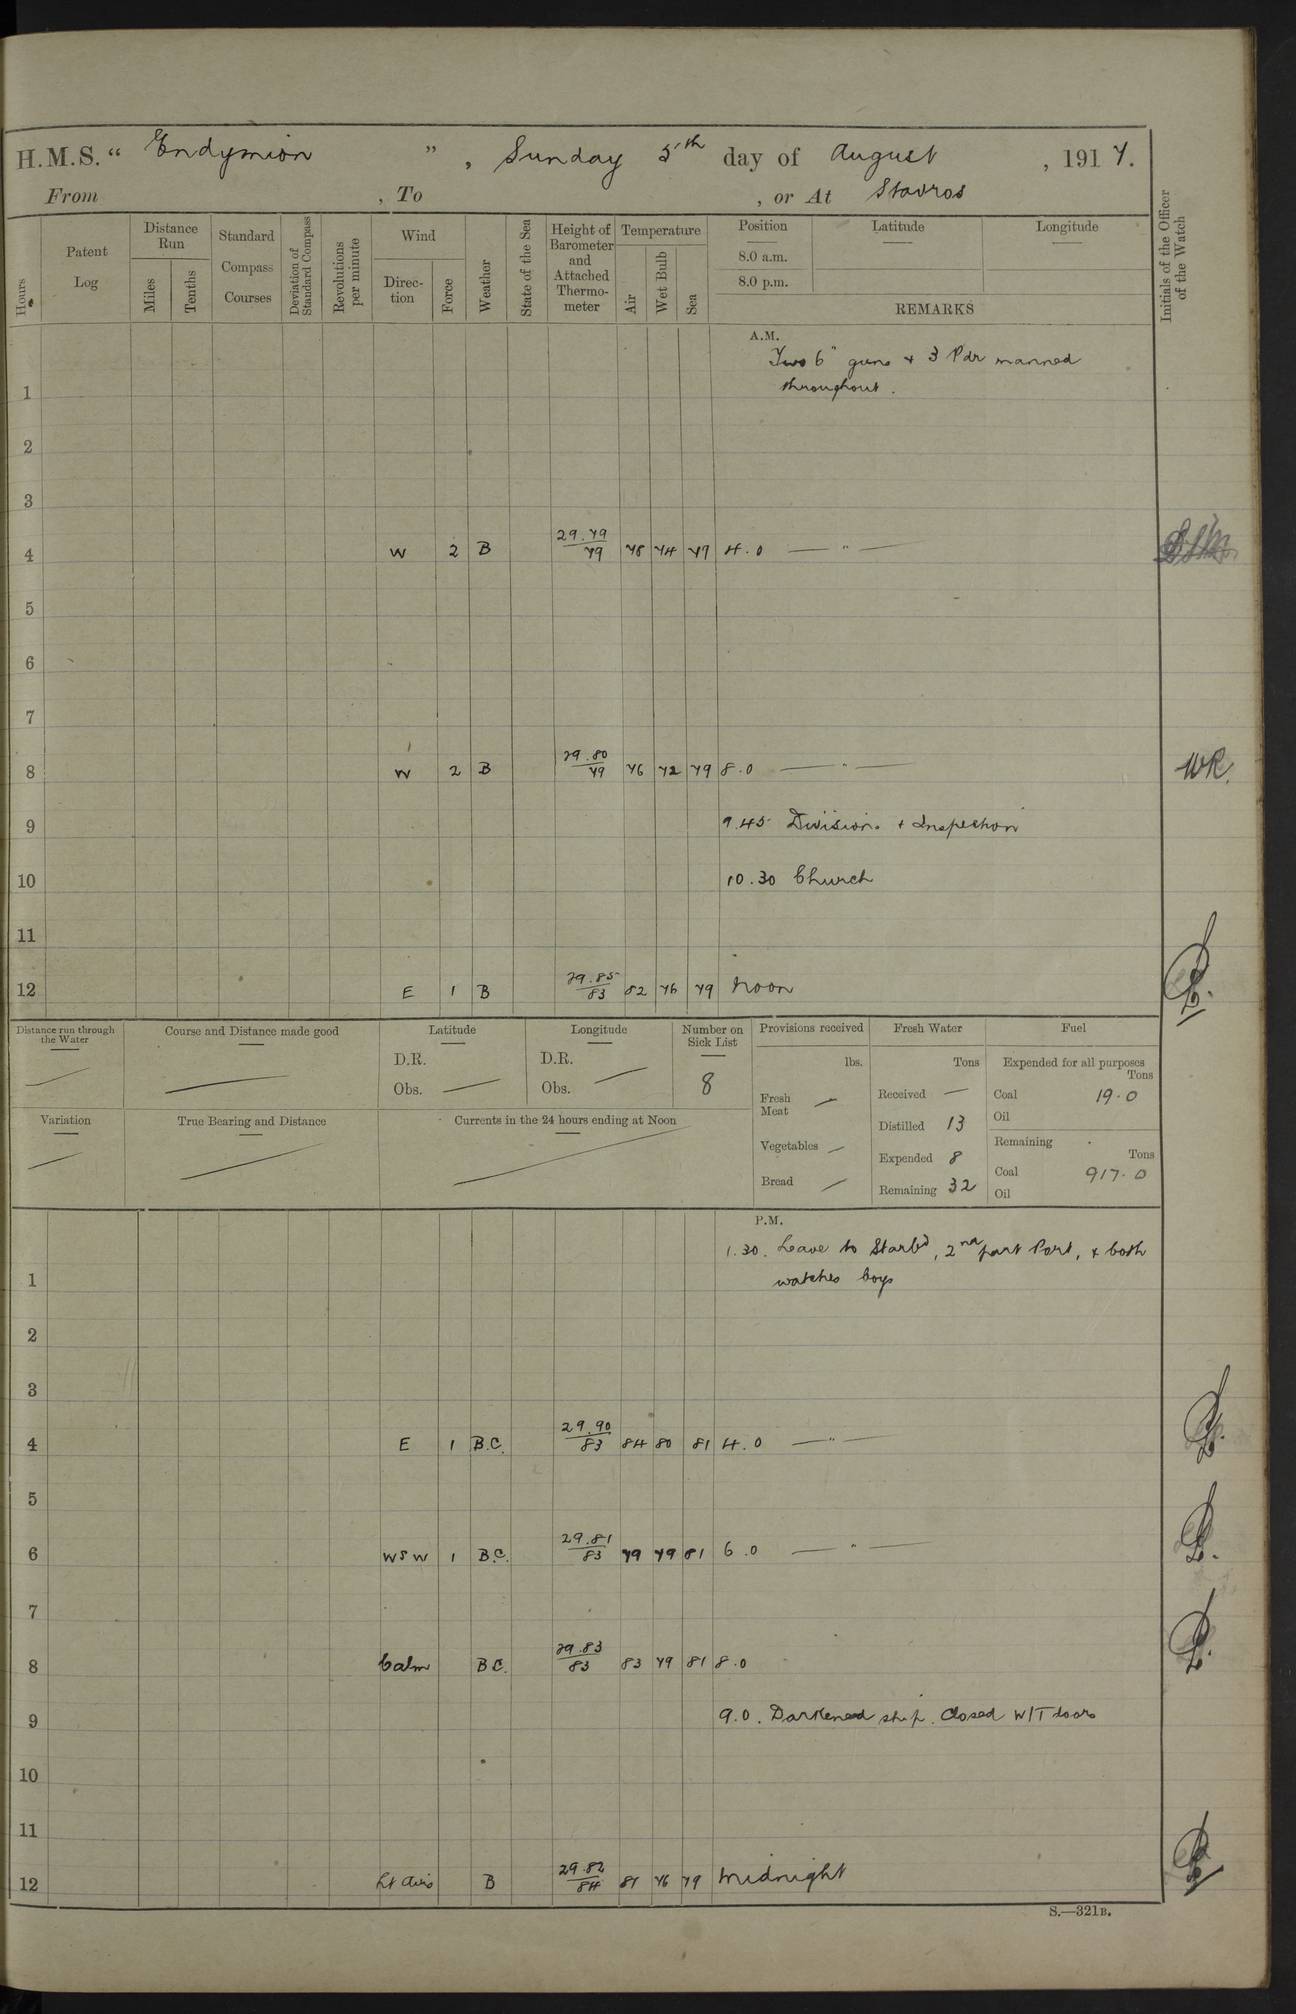 H.M.S. “ Endymion ” , Sunday 5th day of August , 1917.
From , To , or At Stavros
Hours
Patent Log
Distance Run
Miles
Tenths
Standard Compass Courses
Deviation of Standard Compass
Revolutions per minute
Wind
Direc-tion
Force
Weather
State of the Sea
Height of Barometer and Attached Thermo-meter
Temperature
Air
Wet Bulb
Sea
Position
8.0 a.m.
8.0 p.m.
Latitude
Longitude
REMARKS
Initials of the Officer of the Watch
A.M.
Two 6" guns + 3 Pdr manned
1 throughout.
2
3
4 W 2 B 29.79/79 78 74 79 4.0 — " —
5
6
7
8 W 2 B 29.80/79 76 72 79 8.0 — " — WR.
9 9.45 Divisions + Inspection
10 10.30 Church
11
12 E 1 B 29.85/83 82 76 79 Noon
Distance run through the Water
Course and Distance made good
Latitude
D.R.
Obs. —
Longitude
D.R.
Obs. —
Number on Sick List
8
Variation
True Bearing and Distance
Currents in the 24 hours ending at Noon
Provisions received
lbs.
Fresh Meat —
Vegetables —
Bread —
Fresh Water
Tons
Received —
Distilled 13
Expended 8
Remaining 32
Fuel
Expended for all purposes
Tons
Coal 19.0
Oil
Remaining
Tons
Coal 917.0
Oil
P.M.
1.30. Leave to Starbd, 2nd part Port, + both
1 watches boys
2
3
4 E 1 B.C. 29.90/83 84 80 81 4.0 — " —
5
6 WSW 1 B.C. 29.81/83 79 79 81 6.0 — " —
7
8 Calm B.C. 29.83/83 83 79 81 8.0
9 9.0. Darkened ship. Closed W/T doors
10
11
12 Lt Airs B 29.82/84 81 76 79 Midnight
S.—321B.